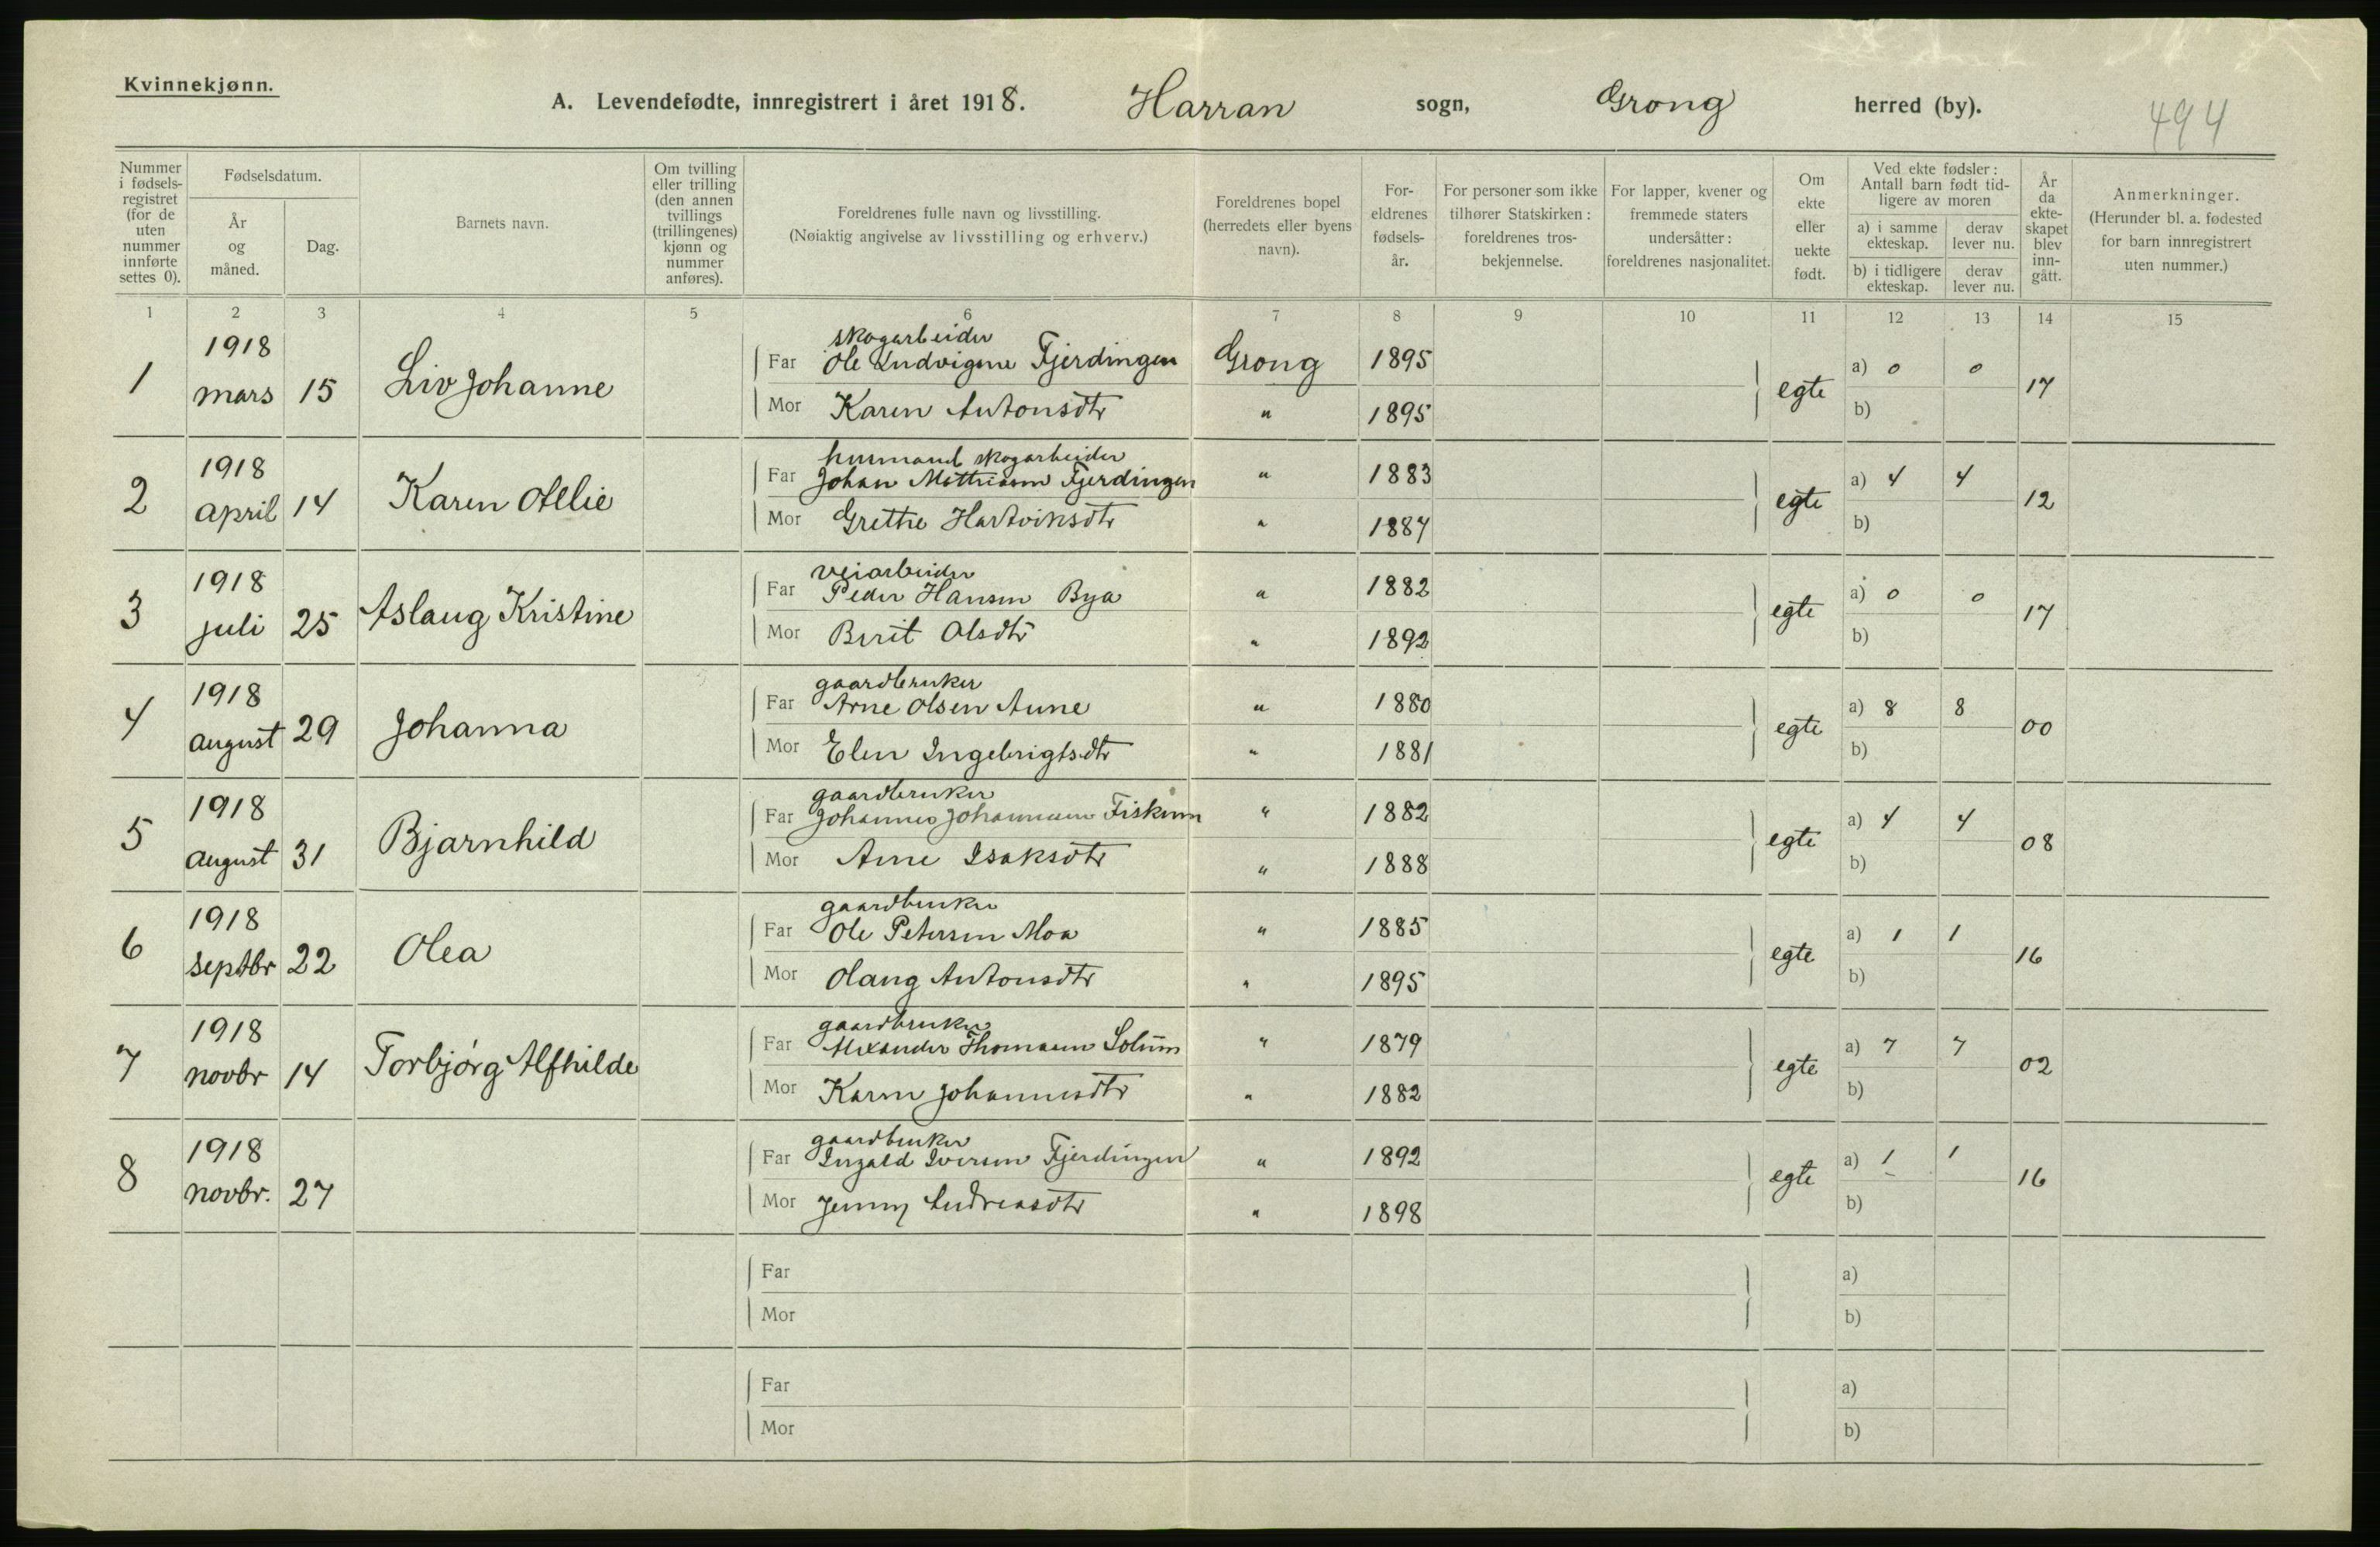 Kvinnekjønn.
A. Levendefødte, innregistrert i året 1918. Harran sogn, Grong herred (by). 494
Nummer i fødsels-registret (for de uten nummer innførte settes 0).
Fødselsdatum.
År og måned.
Dag.
Barnets navn.
Om tvilling eller trilling (den annen tvillings (trillingenes) kjønn og nummer anføres).
Foreldrenes fulle navn og livsstilling.
(Nøiaktig angivelse av livsstilling og erhverv.)
Foreldrenes bopel (herredets eller byens navn).
For-eldrenes fødsels-år.
For personer som ikke tilhører Statskirken: foreldrenes tros-bekjennelse.
For lapper, kvener og fremmede staters undersåtter: foreldrenes nasjonalitet.
Om ekte eller uekte født.
Ved ekte fødsler: Antall barn født tid-ligere av moren
a) i samme ekteskap. derav lever nu.
b) i tidligere ekteskap. derav lever nu.
År da ekte-skapet blev inn-gått.
Anmerkninger.
(Herunder bl. a. fødested for barn innregistrert uten nummer.)
1 2 3 4 5 6 7 8 9 10 11 12 13 14 15
1918 skogarbeider
1 mars 15 Liv Johanne Far Ole Ludvigsen Fjerdingen Grong 1895 egte a) 0 0 17
Mor Karen Antonsdtr " 1895 b)
1918 husmand skogarbeider
2 april 14 Karen Ollie Far Johan Mathiasen Fjerdingen " 1883 egte a) 4 4 12
Mor Grethe Hartviksdtr " 1887 b)
1918 veiarbeider
3 juli 25 Aslaug Kristine Far Peder Hansen Bya " 1882 egte a) 0 0 17
Mor Berit Olsdtr " 1892 b)
1918 gaardbruker
4 august 29 Johanna Far Arne Olsen Aune " 1880 egte a) 8 8 00
Mor Elen Ingebrigtsdtr " 1881 b)
1918 gaardbruker
5 august 31 Bjarnhild Far Johannes Johannesen Fiskum " 1882 egte a) 4 4 08
Mor Ane Isaksdtr " 1888 b)
1918 gaardbruker
6 septbr 22 Olea Far Ole Petersen Moa " 1885 egte a) 1 1 16
Mor Olaug Antonsdtr " 1895 b)
1918 gaardbruker
7 novbr 14 Torbjørg Alfhilde Far Alexander Thomasen Solum " 1879 egte a) 7 7 02
Mor Karen Johannesdtr " 1882 b)
1918 gaardbruker
8 novbr. 27 Far Ingald Iversen Fjerdingen " 1892 egte a) 1 1 16
Mor Jenny Andreasdtr " 1898 b)
Far a)
Mor b)
Far a)
Mor b)